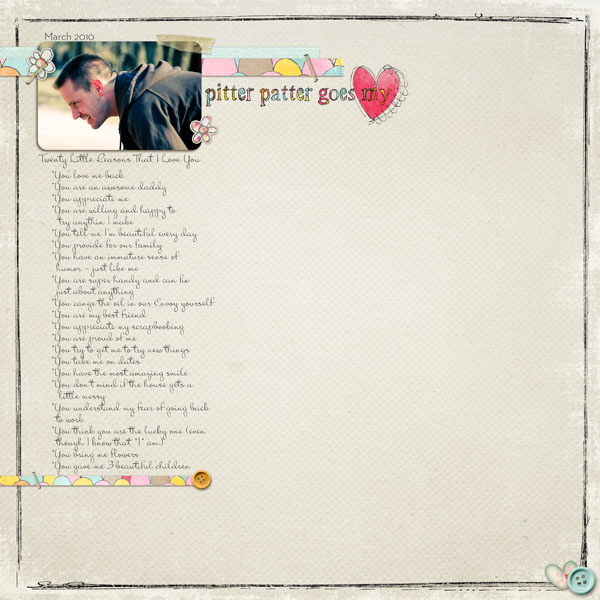 March 2010
pitter patter goes my
Twenty Little Reasons That I Love You
*You love me back
*You are an awesome daddy
*You appreciate me
*You are willing and happy to
try anythin I make
*You tell me I'm beautiful every day
*You provide for our family
*You have an immature sense of
humor - just like me
*You are super handy and can fie
just about anything
*You cange the oil in our Envoy yourself
*You are my best friend
*You appreciate my scrapbooking
*You are proud of me
*You try to get me to try new things
*You take me on dates
*You have the most amazing smile
*You don't mind if the house gets a
little messy
*You understand my fear of going back
to work
*You think you are the lucky one (even
though I know that "I" am)
*You bring me flowers
*You gave me 3 beautiful children